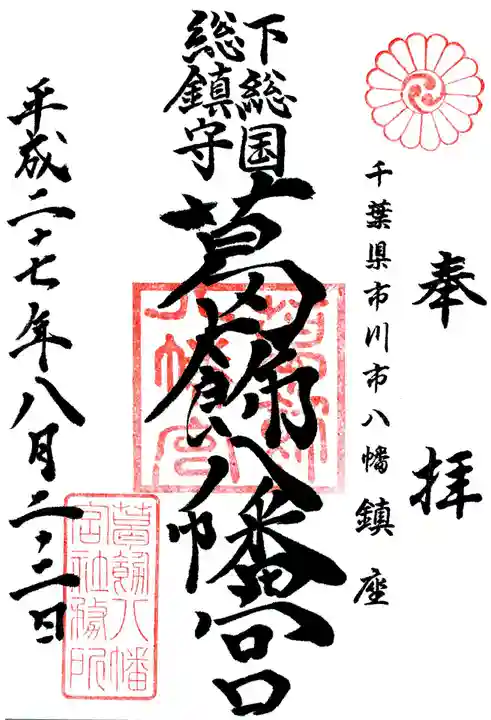 奉拝
千葉県市川市八幡鎮座
下総国
総鎮守
葛飾八幡宮
葛飾
八幡宮
平成二十七年八月二十二日
葛飾八幡
宮社務所